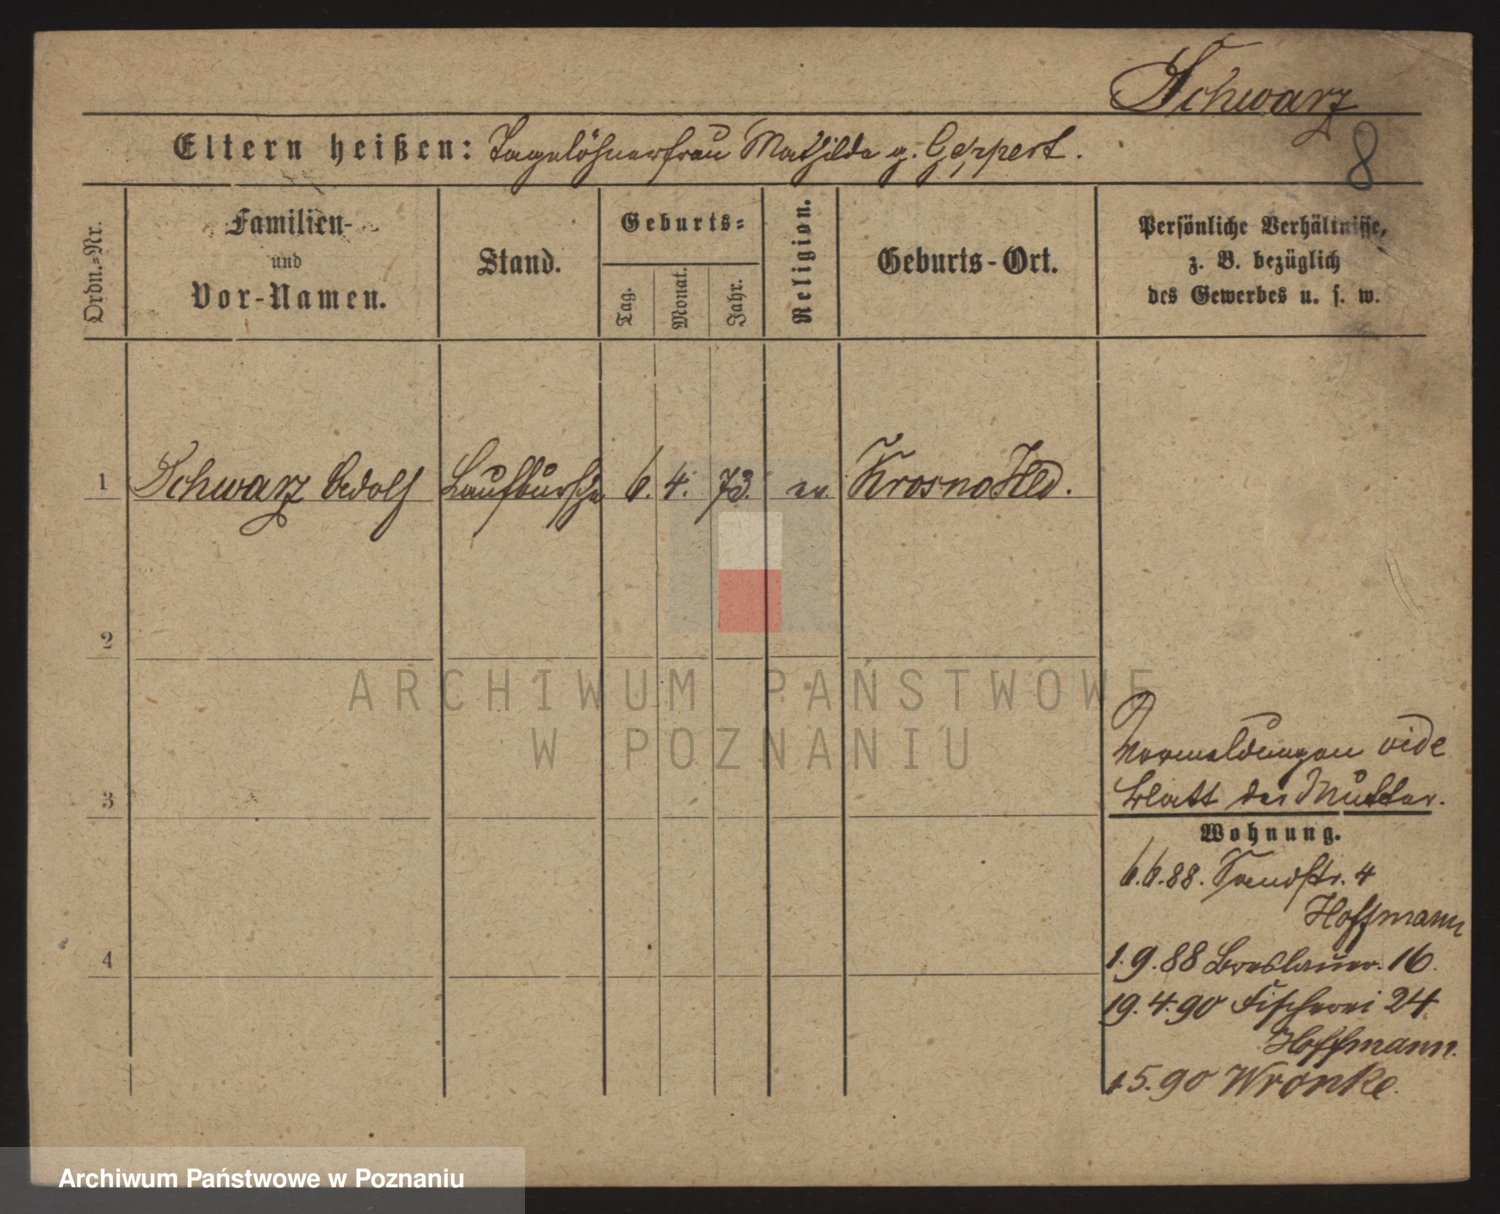 Schwarz
8
Eltern heißen: Tagelöhnerfrau Mathilde g. Geppert.
Ordn.-Nr.
Familien-
und
Vor-Namen.
Stand.
Geburts=
Tag.
Monat.
Jahr.
Religion.
Geburts-Ort.
Persönliche Verhältnisse,
z. B. bezüglich
des Gewerbes u. s. w.
1 Schwarz Adolf Laufbursche 6. 4. 73. ev. Krosno Hld.
2
3
4
ARCHIWUM PAŃSTWOWE
W POZNANIU
Vormeldungen vide
Blatt der Mutter.
Wohnung.
6.6.88. Sandstr. 4
Hoffmann
1.9.88 Breslauer. 16.
19.4.90 Fischerei 24
Hoffmann.
1.5.90 Wronke.
Archiwum Państwowe w Poznaniu